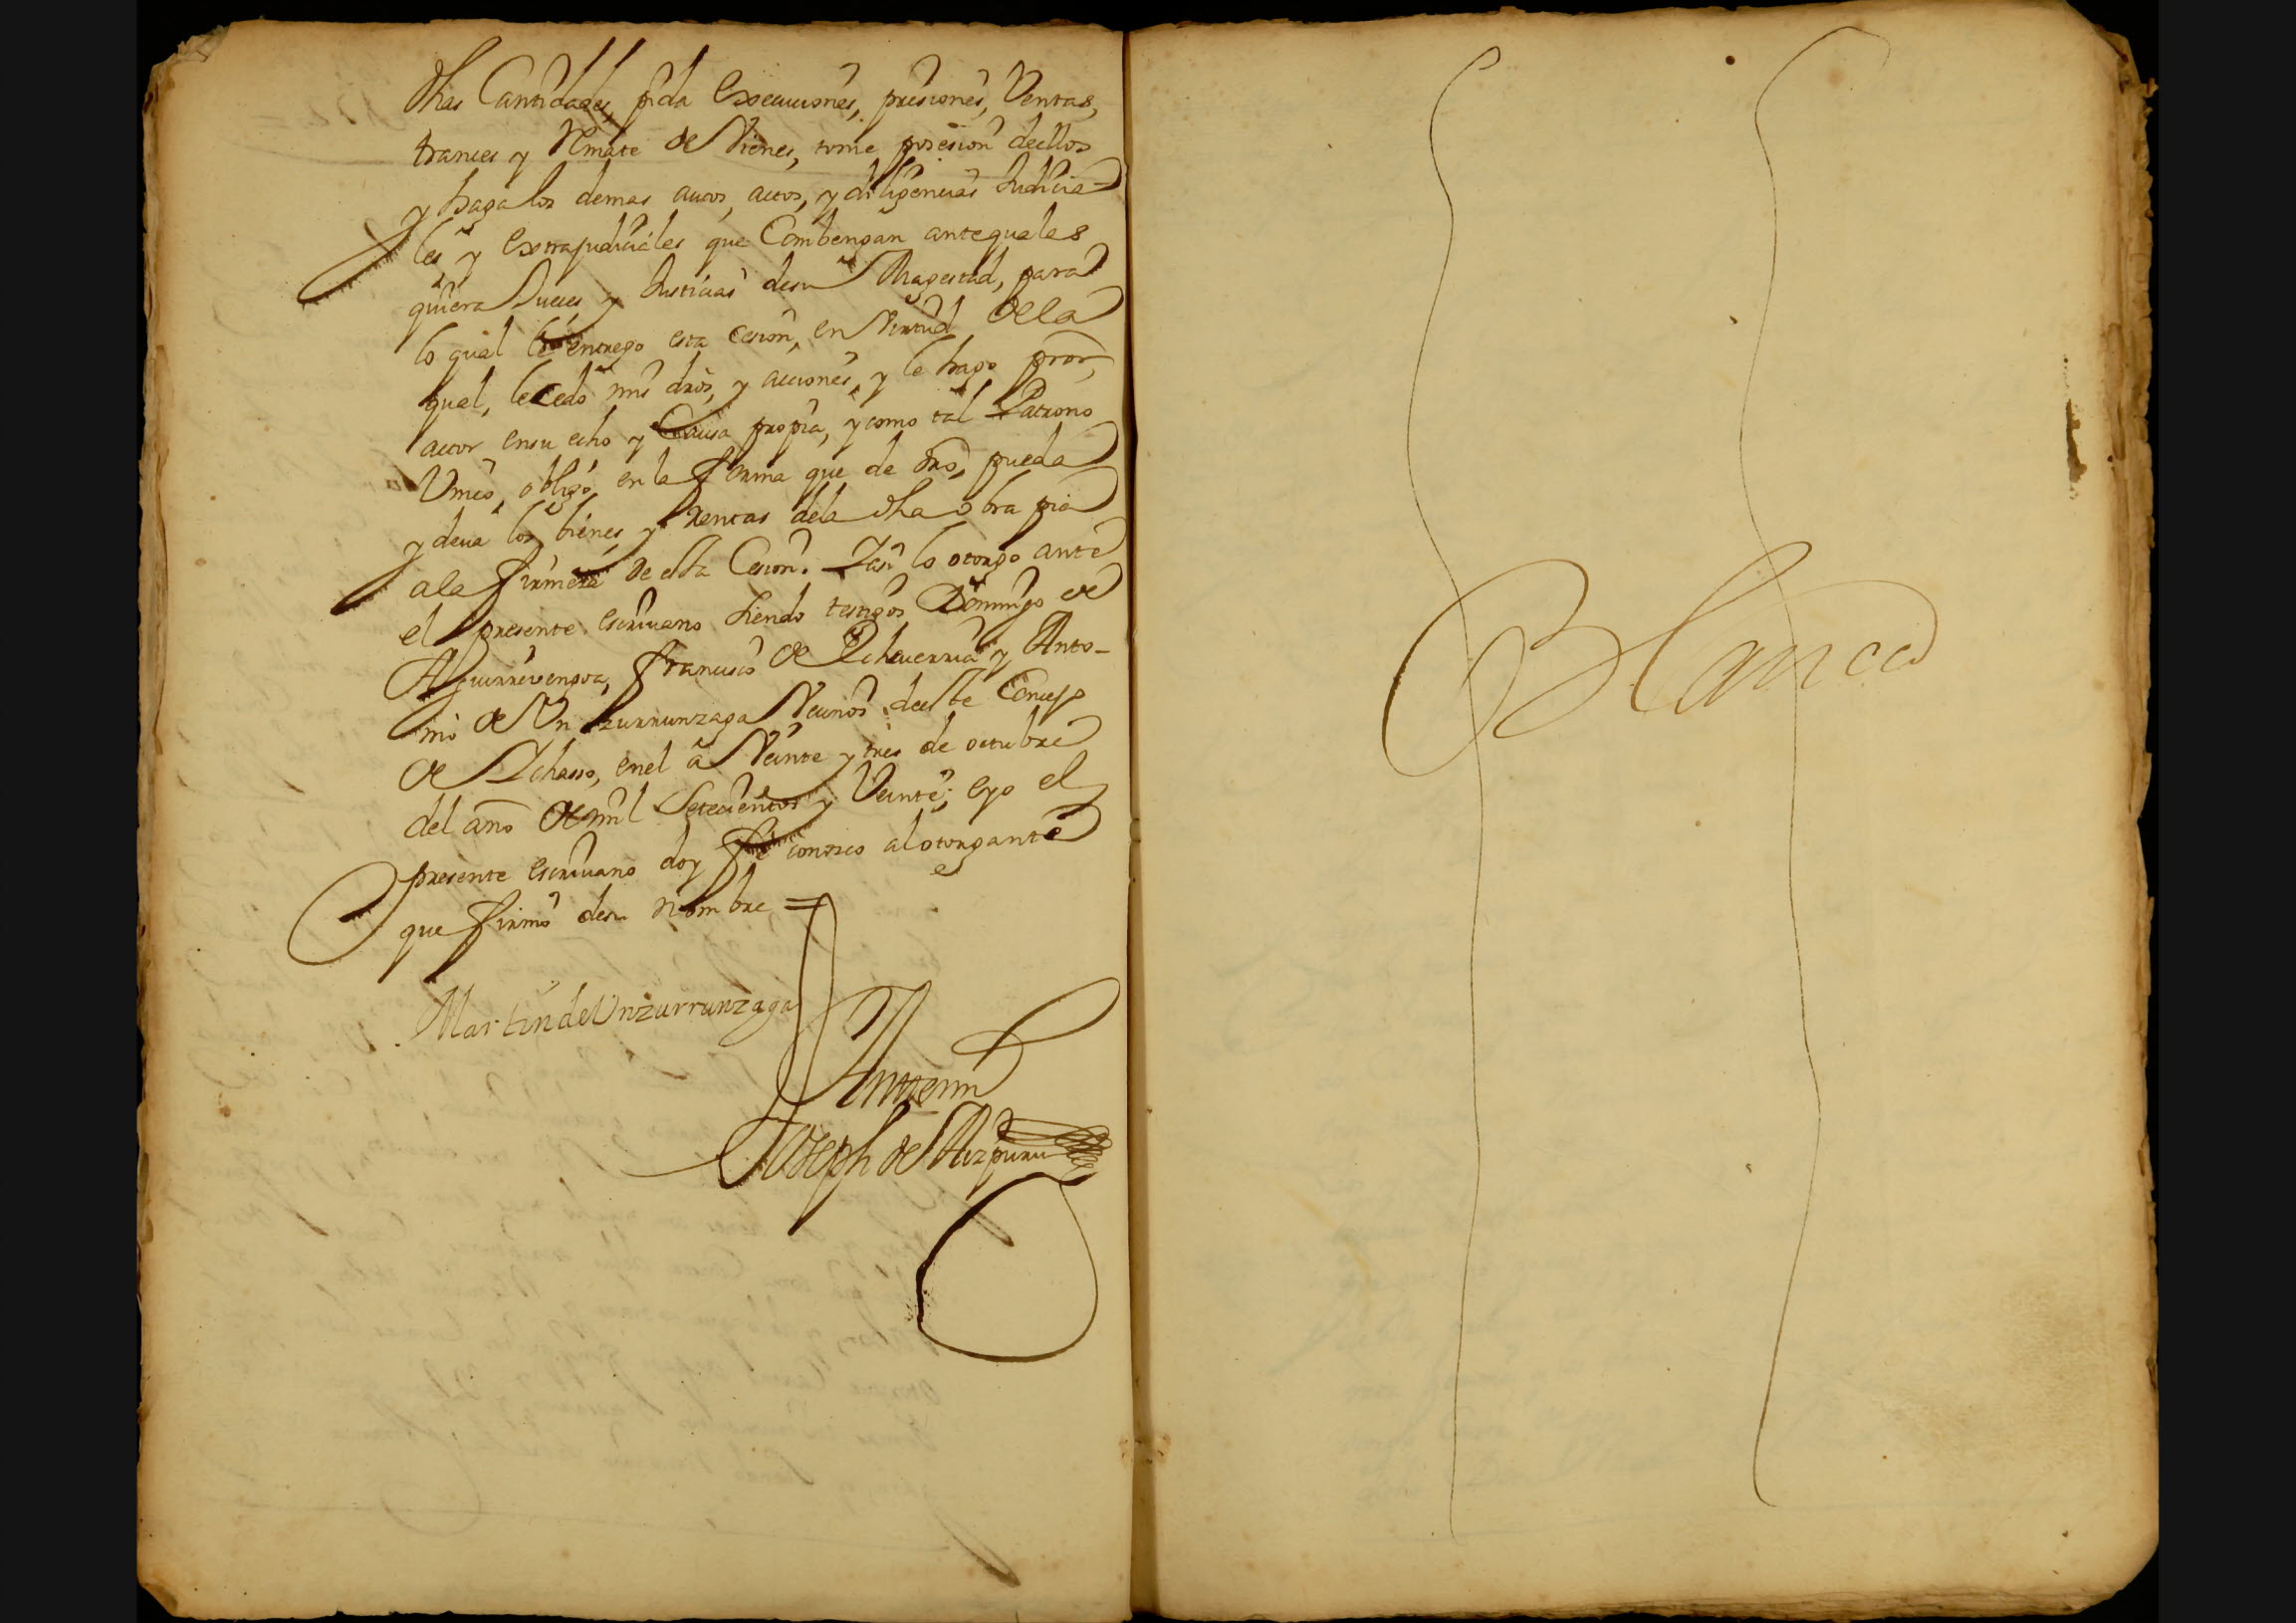 dhas Cantidades, pida Execuciones, prisiones, Ventas,
trances y Remate de Vienes, tome posesion dellos
y haga los demas autos, actos, y diligencias Judicia-
les y extrajudiciales que Combengan antequales
quiera Jueces y Justicias desu Magestad, para
lo qual le entrego esta cesion, en Virtud dela
qual, le cedo mis dros, y acciones, y le hago pror,
actor ensu echo y Causa propia, y como tal Patrono
Unico, obligo en la forma que de dro, pueda
y deva los bienes y rentas dela dha obra pia
ala firmeza de esta Cesion. Iasi lo otorgo ante
el presente escrivano siendo testigos Domingo de
Aguirrevengoa, Francisco de Echeverria y Anto-
nio de Unzurrunzaga Vecinos deeste Concejo
de Ichasso, enel a Veinte y tres de octubre
del año de mil Setecientos y Veinte; eyo el
presente escrivano doy fee conozco alotorgante
que firmo desu nombre =
Martin de Unzurrunzaga
Antemi
Joseph de Aizpuru
Blanco